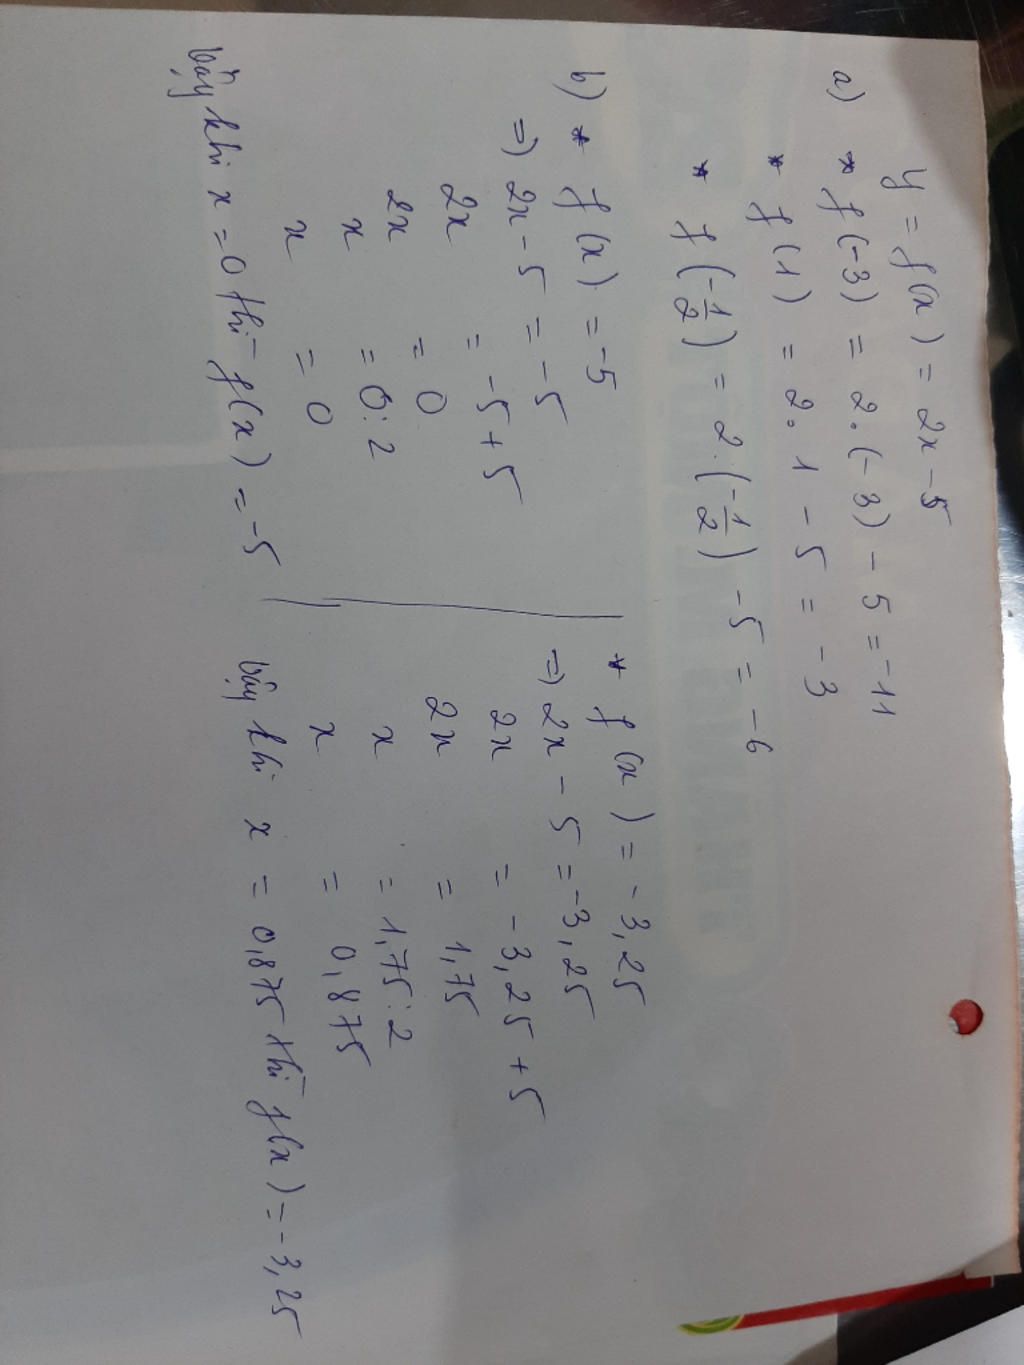 y = f(x) = 2x - 5
a) * f(-3) = 2.(-3) - 5 = -11
* f(1) = 2.1 - 5 = -3
* f(-1/2) = 2.(-1/2) - 5 = -6
b) * f(x) = -5
=> 2x - 5 = -5
2x = -5 + 5
2x = 0
x = 0:2
x = 0
Vậy khi x = 0 thì f(x) = -5
* f(x) = -3,25
=> 2x - 5 = -3,25
2x = -3,25 + 5
2x = 1,75
x = 1,75:2
x = 0,875
Vậy khi x = 0,875 thì f(x) = -3,25